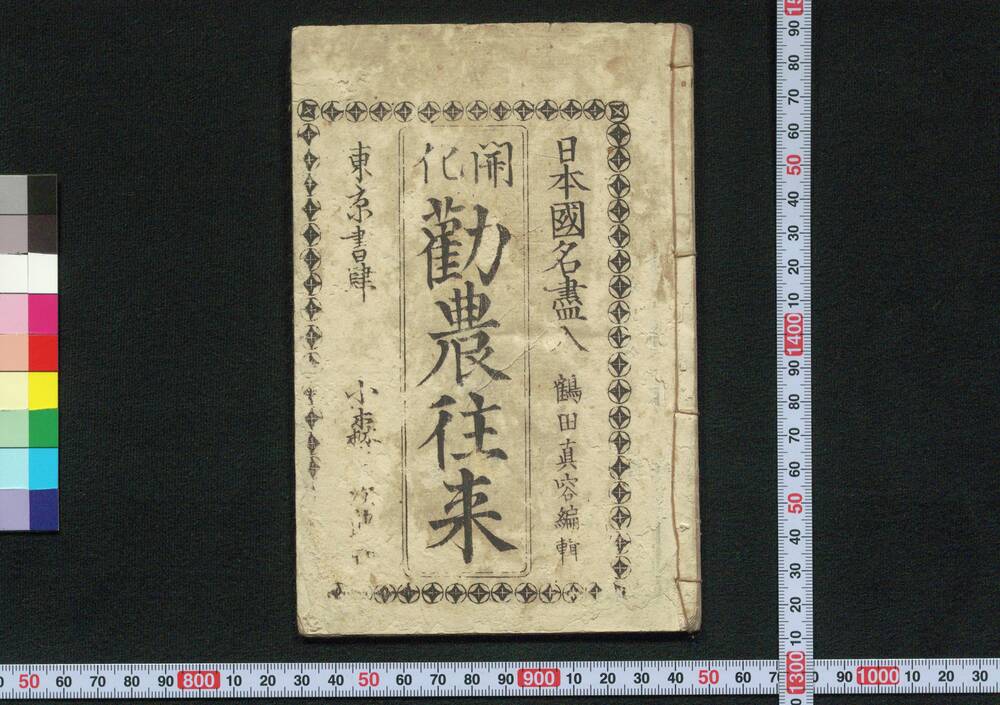 日本國名盡入
鶴田真容編輯
開化
勸農往来
東京書肆
小森
50 60 70 80 90 800 10 20 30 40 50 60 70 80 90 900 10 20 30 40 50 60 7 90 1000 10 20 30
90 80 70 60 50 40 30 20 10 1400 90 80 70 60 50 40 30 20 10 1300